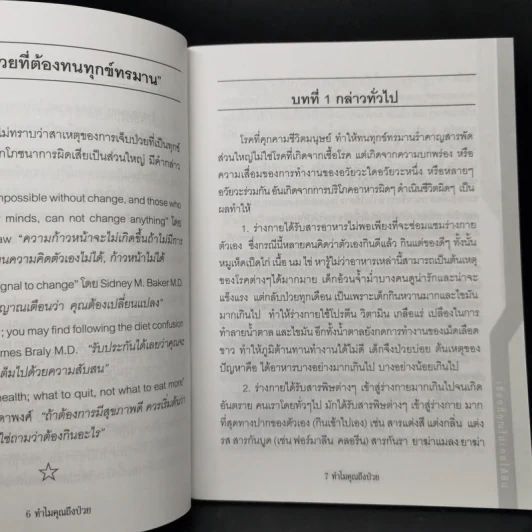 วยที่ต้องทนทุกข์ทรมาน"
ม่ทราบว่าสาเหตุของการเจ็บป่วยที่เป็นทุกข์
กโภชนาการผิดเสียเป็นส่วนใหญ่ มีคำกล่าว
mpossible without change, and those who
r minds, can not change anything" โดย
aw. "ความก้าวหน้าจะไม่เกิดขึ้นถ้าไม่มีการ
นความคิดตัวเองไม่ได้, ก้าวหน้าไม่ได้
gnal to change" โดย Sidney M. Baker M.D.
ญาณเตือนว่า คุณต้องเปลี่ยนแปลง"
; you may find following the diet confusion
mes Braly M.D. "รับประกันได้เลยว่าคุณจะ
ต็มไปด้วยความสับสน"
health; what to quit, not what to eat more"
ดาพงศ์ "ถ้าต้องการมีสุขภาพดี ควรเริ่มต้นว่า
ใช่ถามว่าต้องกินอะไร"
6 ทำไมคุณถึงป่วย
บทที่ 1 กล่าวทั่วไป
โรคที่คุกคามชีวิตมนุษย์ ทำให้ทนทุกข์ทรมานรำคาญสารพัด
ส่วนใหญ่ไม่ใช่โรคที่เกิดจากเชื้อโรค แต่เกิดจากความบกพร่อง หรือ
ความเสื่อมของการทำงานของอวัยวะใดอวัยวะหนึ่ง หรือหลายๆ
อวัยวะร่วมกัน อันเกิดจากการบริโภคอาหารผิดๆ ดำเนินชีวิตผิดๆ เป็น
ผลทำให้
1. ร่างกายได้รับสารอาหารไม่พอเพียงที่จะซ่อมแซมร่างกาย
ตัวเอง ซึ่งกรณีนี้หลายคนคิดว่าตัวเองกินดีแล้ว กินแต่ของดีๆ ทั้งนั้น
หมูเห็ดเป็ดไก่ เนื้อ นม ไข่ หารู้ไม่ว่าอาหารเหล่านี้สามารถเป็นต้นเหตุ
ของโรคต่างๆได้มากมาย เด็กอ้วนจ้ำม่ำบางคนดูน่ารักและน่าจะ
แข็งแรง แต่กลับป่วยทุกเดือน เป็นเพราะเด็กกินหวานมากและไขมัน
มากเกินไป ทำให้ร่างกายใช้โปรตีน วิตามิน เกลือแร่ เปลืองในการ
ทำลายน้ำตาล และไขมัน อีกทั้งน้ำตาลยังกดการทำงานของเม็ดเลือด
ขาว ทำให้ภูมิต้านทานทำงานได้ไม่ดี เด็กจึงป่วยบ่อย ต้นเหตุของ
ปัญหาคือ ได้อาหารบางอย่างมากเกินไป บางอย่างน้อยเกินไป
2. ร่างกายได้รับสารพิษต่างๆ เข้าสู่ร่างกายมากเกินไปจนเกิด
อันตราย คนเราโดยทั่วๆไป มักได้รับสารพิษต่างๆ เข้าสู่ร่างกาย มาก
ที่สุดทางปากของตัวเอง (กินเข้าไปเอง) เช่น สารแต่งสี แต่งกลิ่น แต่ง
รส สารกันบูด (เช่น ฟอร์มาลีน คลอรีน) สารกันรา ยาฆ่าแมลง ยาฆ่า
7 ทำไมคุณถึงป่วย